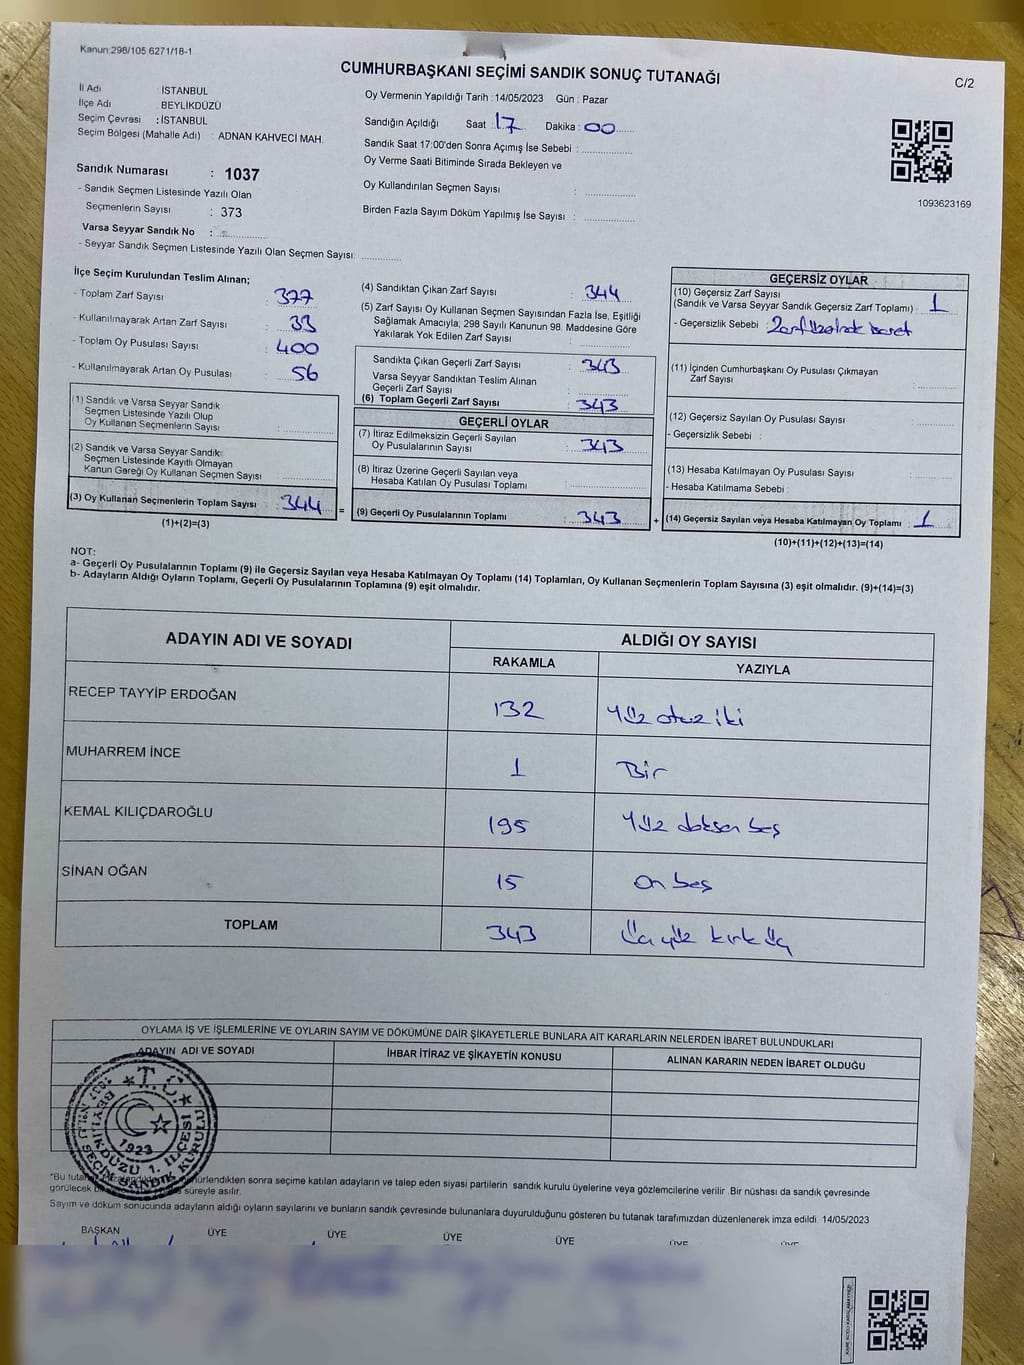 Kanun:298/105,6271/18-1
CUMHURBAŞKANI SEÇİMİ SANDIK SONUÇ TUTANAĞI
C/2
İl Adı : İSTANBUL
İlçe Adı : BEYLİKDÜZÜ
Seçim Çevresi : İSTANBUL
Seçim Bölgesi (Mahalle Adı) : ADNAN KAHVECİ MAH.
Oy Vermenin Yapıldığı Tarih : 14/05/2023 Gün : Pazar
Sandığın Açıldığı Saat : 17 Dakika : 00
Sandık Saat 17:00'den Sonra Açımış İse Sebebi :
Oy Verme Saati Bitiminde Sırada Bekleyen ve
Oy Kullandırılan Seçmen Sayısı :
Birden Fazla Sayım Döküm Yapılmış İse Sayısı :
1093623169
Sandık Numarası : 1037
- Sandık Seçmen Listesinde Yazılı Olan
Seçmenlerin Sayısı : 373
Varsa Seyyar Sandık No :
- Seyyar Sandık Seçmen Listesinde Yazılı Olan Seçmen Sayısı:
İlçe Seçim Kurulundan Teslim Alınan;
- Toplam Zarf Sayısı : 377
- Kullanılmayarak Artan Zarf Sayısı : 33
- Toplam Oy Pusulası Sayısı : 400
- Kullanılmayarak Artan Oy Pusulası : 56
(1) Sandık ve Varsa Seyyar Sandık
Seçmen Listesinde Yazılı Olup
Oy Kullanan Seçmenlerin Sayısı :
(2) Sandık ve Varsa Seyyar Sandık:
Seçmen Listesinde Kayıtlı Olmayan
Kanun Gereği Oy Kullanan Seçmen Sayısı :
(3) Oy Kullanan Seçmenlerin Toplam Sayısı : 344
(1)+(2)=(3)
(4) Sandıktan Çıkan Zarf Sayısı : 344
(5) Zarf Sayısı Oy Kullanan Seçmen Sayısından Fazla İse, Eşitliği
Sağlamak Amacıyla; 298 Sayılı Kanunun 98. Maddesine Göre
Yakılarak Yok Edilen Zarf Sayısı :
Sandıkta Çıkan Geçerli Zarf Sayısı : 343
Varsa Seyyar Sandıktan Teslim Alınan
Geçerli Zarf Sayısı :
(6) Toplam Geçerli Zarf Sayısı : 343
GEÇERLİ OYLAR
(7) İtiraz Edilmeksizin Geçerli Sayılan
Oy Pusulalarının Sayısı : 343
(8) İtiraz Üzerine Geçerli Sayılan veya
Hesaba Katılan Oy Pusulası Toplamı :
= (9) Geçerli Oy Pusulalarının Toplamı : 343
GEÇERSİZ OYLAR
(10) Geçersiz Zarf Sayısı
(Sandık ve Varsa Seyyar Sandık Geçersiz Zarf Toplamı) : 1
- Geçersizlik Sebebi : Zarf üzerinde işaret
(11) İçinden Cumhurbaşkanı Oy Pusulası Çıkmayan
Zarf Sayısı :
(12) Geçersiz Sayılan Oy Pusulası Sayısı :
- Geçersizlik Sebebi :
(13) Hesaba Katılmayan Oy Pusulası Sayısı :
- Hesaba Katılmama Sebebi :
+ (14) Geçersiz Sayılan veya Hesaba Katılmayan Oy Toplamı : 1
(10)+(11)+(12)+(13)=(14)
NOT:
a- Geçerli Oy Pusulalarının Toplamı (9) ile Geçersiz Sayılan veya Hesaba Katılmayan Oy Toplamı (14) Toplamları, Oy Kullanan Seçmenlerin Toplam Sayısına (3) eşit olmalıdır. (9)+(14)=(3)
b- Adayların Aldığı Oyların Toplamı, Geçerli Oy Pusulalarının Toplamına (9) eşit olmalıdır.
ADAYIN ADI VE SOYADI ALDIĞI OY SAYISI
RAKAMLA YAZIYLA
RECEP TAYYİP ERDOĞAN 132 Yüz otuz iki
MUHARREM İNCE 1 Bir
KEMAL KILIÇDAROĞLU 195 Yüz doksan beş
SİNAN OĞAN 15 On beş
TOPLAM 343 Üç yüz kırk üç
OYLAMA İŞ VE İŞLEMLERİNE VE OYLARIN SAYIM VE DÖKÜMÜNE DAİR ŞİKAYETLERLE BUNLARA AİT KARARLARIN NELERDEN İBARET BULUNDUKLARI
ADAYIN ADI VE SOYADI İHBAR İTİRAZ VE ŞİKAYETİN KONUSU ALINAN KARARIN NEDEN İBARET OLDUĞU
T.C.
1923
BEYLİKDÜZÜ 1. İLÇESİ
1037 NOLU SEÇİM SANDIK KURULU
*Bu tuta sonra seçime katılan adayların ve talep eden siyasi partilerin sandık kurulu üyelerine veya gözlemcilerine verilir .Bir nüshası da sandık çevresinde
görülecek süreyle asılır.
Sayım ve döküm sonucunda adayların aldığı oyların sayılarını ve bunların sandık çevresinde bulunanlara duyurulduğunu gösteren bu tutanak tarafımızdan düzenlenerek imza edildi. 14/05/2023
BAŞKAN ÜYE ÜYE ÜYE ÜYE ÜYE ÜYE